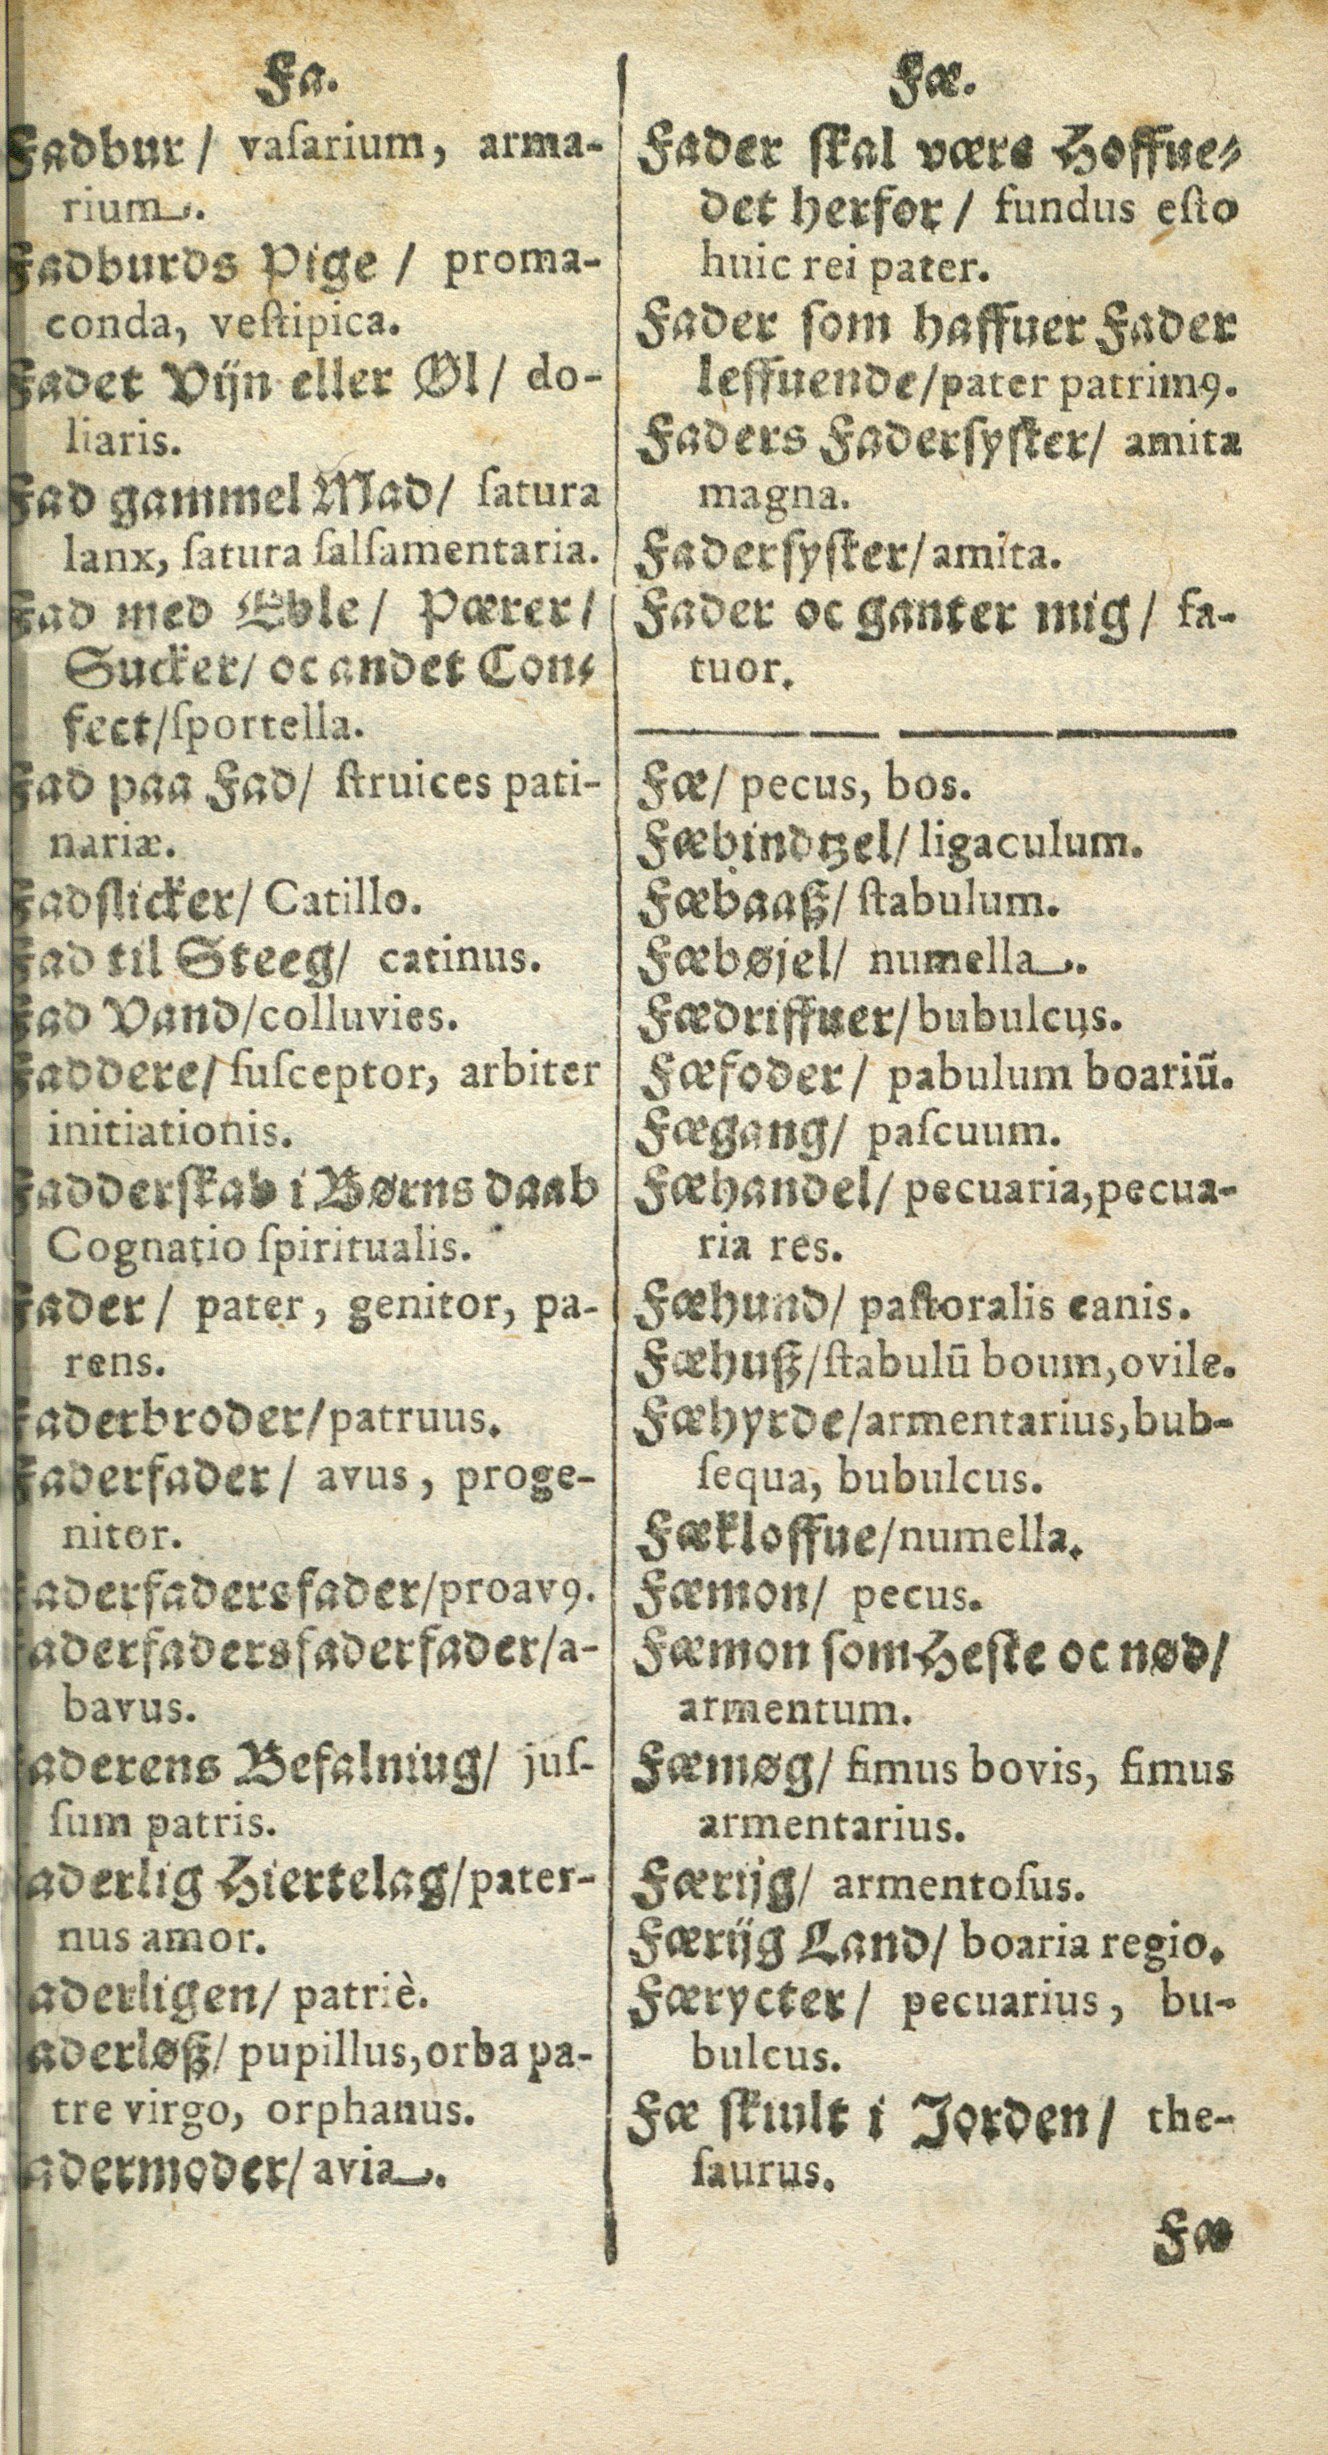 Fa.
Fadbur / vaſarium, arma-
rium.
Fadburds Pige / proma-
conda, veſtipica.
Fadet Vijn eller Øl / do-
liaris.
Fad gammel Mad / ſatura
lanx, ſatura ſalſamentaria.
Fad med Eble / Pærer /
Sucker / oc andet Con-
fect / ſportella.
Fad paa Fad / ſtruices pati-
nariæ.
Fadſlicker / Catillo.
Fad til Steeg / catinus.
Fad Vand / colluvies.
Faddere / ſuſceptor, arbiter
initiationis.
Fadderſkab i Børns daab
Cognatio ſpiritualis.
Fader / pater, genitor, pa-
rens.
Faderbroder / patruus.
Faderfader / avus, proge-
nitor.
aderfadersfader / proavꝰ.
aderfadersfaderfader / a-
bavus.
aderens Befalniug / juſ-
ſum patris.
aderlig Hiertelag / pater-
nus amor.
aderligen / patriè.
aderløß / pupillus, orba pa-
tre virgo, orphanus.
adermoder / avia.
Fæ.
Fader ſkal være Hoffue-
det herfor / fundus eſto
huic rei pater.
Fader ſom haffuer Fader
leffuende / pater patrimꝰ.
Faders Faderſyſter / amita
magna.
Faderſyſter / amita.
Fader oc ganter mig / fa-
tuor.
Fæ / pecus, bos.
Fæbindtzel / ligaculum.
Fæbaaß / ſtabulum.
Fæbøjel / numella.
Fædriffuer / bubulcus.
Fæfoder / pabulum boariū.
Fægang / paſcuum.
Fæhandel / pecuaria, pecua-
ria res.
Fæhund / paſtoralis canis.
Fæhuß / ſtabulū boum, ovile.
Fæhyrde / armentarius, bub-
ſequa, bubulcus.
Fækloffue / numella.
Fæmon / pecus.
Fæmon ſom Heſte oc nød /
armentum.
Fæmøg / fimus bovis, fimus
armentarius.
Færijg / armentoſus.
Færijg Land / boaria regio.
Færycter / pecuarius, bu-
bulcus.
Fæ ſkiult i Jorden / the-
ſaurus.
Fæ